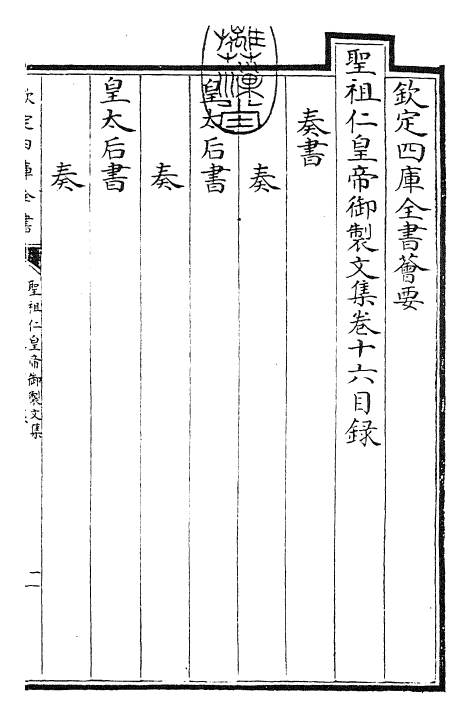 欽定四庫全書薈要
聖祖仁皇帝御製文集卷十六目録
奏書
奏
皇太后書
奏
皇太后書
奏
欽定四庫全書
聖祖仁皇帝御製文集